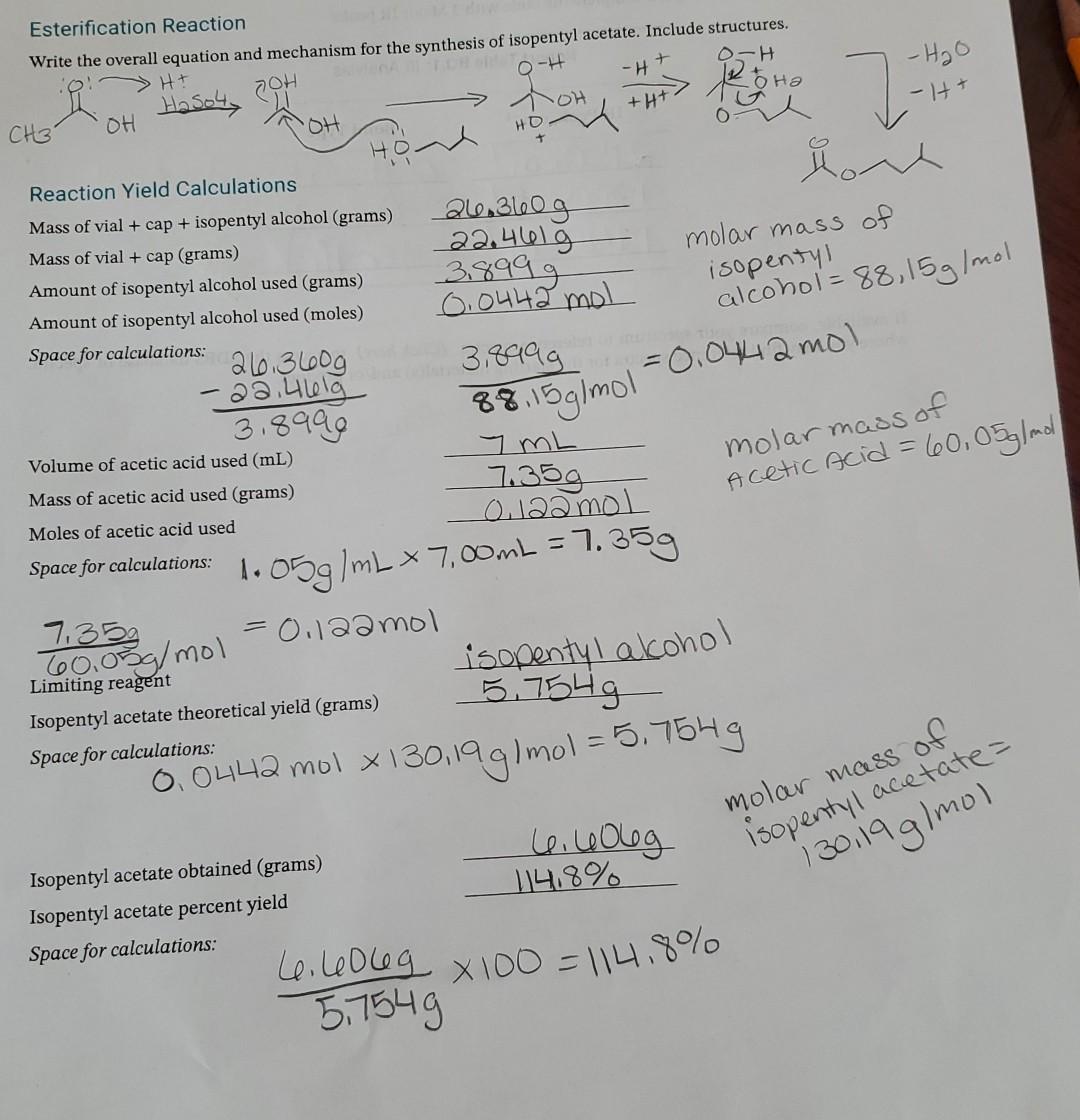 Esterification Reaction
Write the overall equation and mechanism for the synthesis of isopentyl acetate. Include structures.
:O: H+ H2SO4 OH O-H -H+ O-H -H2O
CH3 OH OH OH +H+ + OH2 -H+
HO HO O
+
O
O
Reaction Yield Calculations
Mass of vial + cap + isopentyl alcohol (grams) 26.360g
Mass of vial + cap (grams) 22.461g
Amount of isopentyl alcohol used (grams) 3.899g
Amount of isopentyl alcohol used (moles) 0.0442 mol
molar mass of
isopentyl
alcohol = 88.15g/mol
Space for calculations:
26.360g
- 22.461g
3.899g
3.899g
88.15g/mol = 0.0442mol
Volume of acetic acid used (mL) 7 mL
Mass of acetic acid used (grams) 7.35g
Moles of acetic acid used 0.122mol
molar mass of
Acetic Acid = 60.05g/mol
Space for calculations: 1.05g/mL x 7.00mL = 7.35g
7.35g
60.05g/mol = 0.122mol
Limiting reagent isopentyl alcohol
Isopentyl acetate theoretical yield (grams) 5.754g
Space for calculations:
0.0442 mol x 130.19g/mol = 5.754g
molar mass of
isopentyl acetate =
130.19g/mol
Isopentyl acetate obtained (grams) 6.606g
Isopentyl acetate percent yield 114.8%
Space for calculations:
6.606g
5.754g x100 = 114.8%